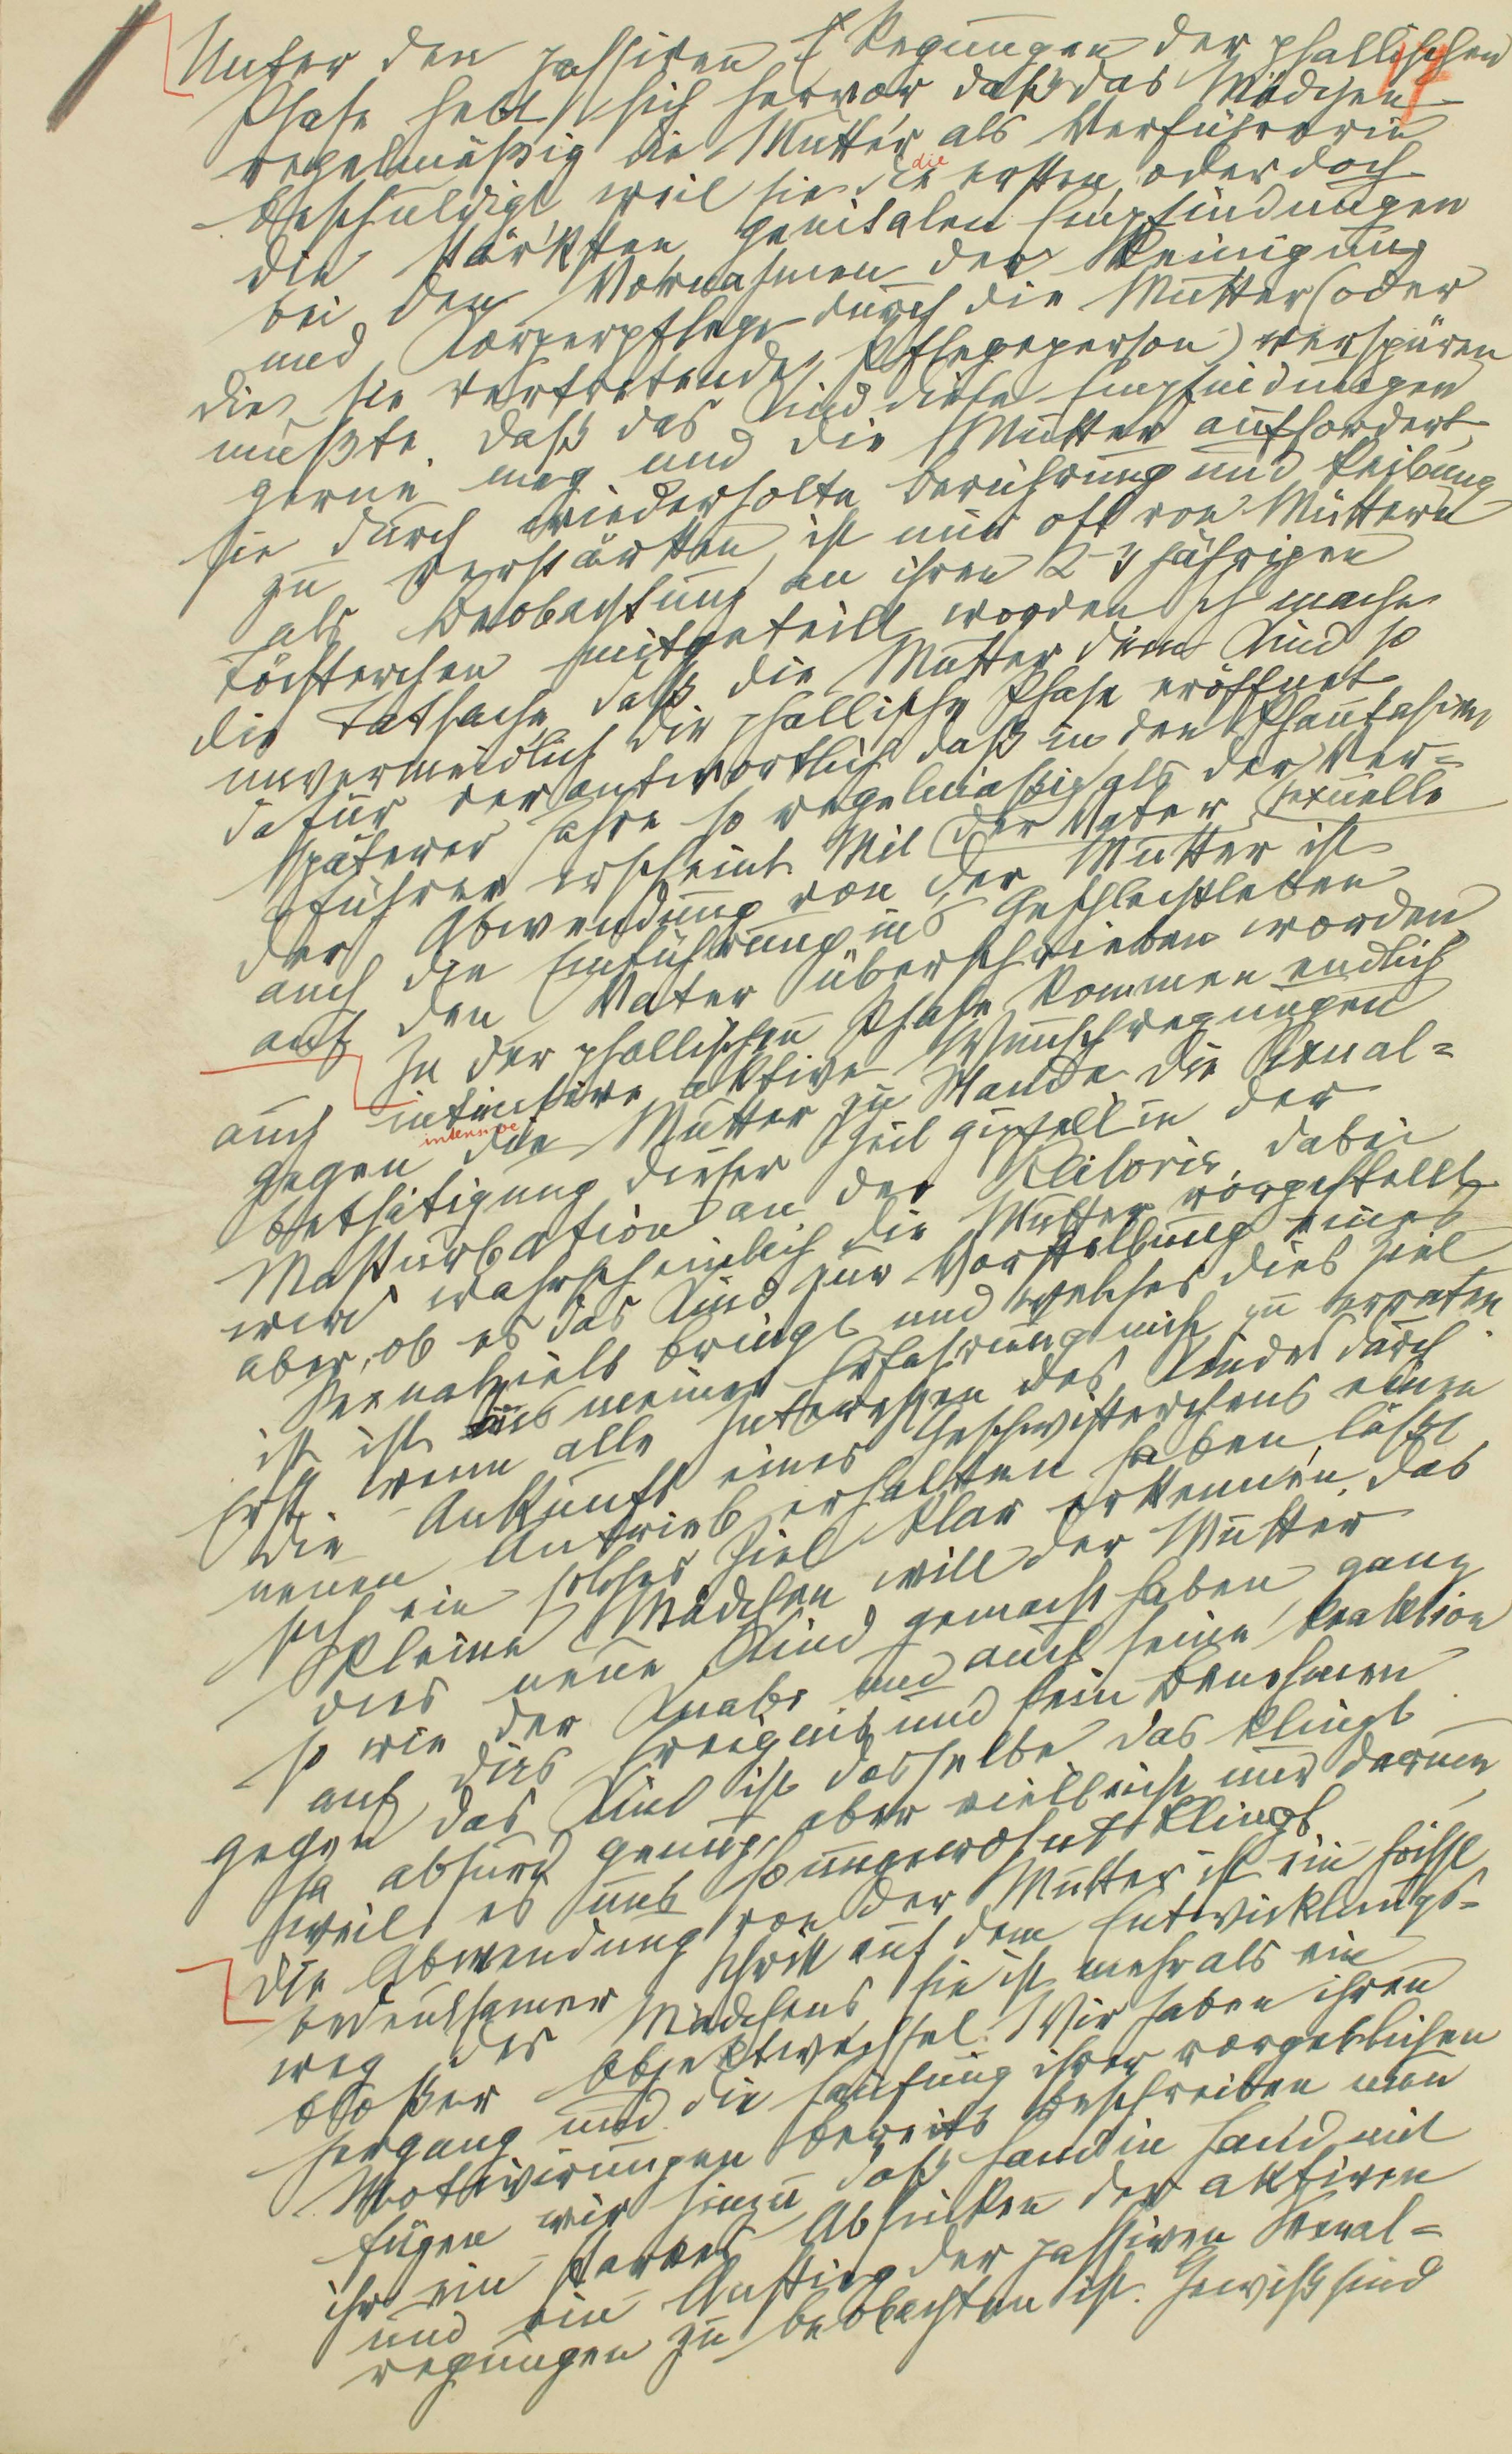 Unter den passiven Regungen der phallischen
Phase hebt sich hervor daß das Mädchen
regelmäßig die Mutter als Verführerin
beschuldigt, weil sie die die ersten, oder doch
die stärksten genitalen Empfindungen
bei den Vornahmen der Reinigung
und Körperpflege durch die Mutter (oder
die sie vertretende Pflegeperson) verspüren
mußte. Daß das Kind diese Empfindungen
gerne mag und die Mutter auffordert
sie durch wiederholte Berührung und Reibung
zu verstärken, ist mir oft von Müttern
als Beobachtung an ihren 2-3 jährigen
Töchterchen mitgeteilt worden ich mache
die Tatsache, daß die Mutter dem Kind so
unvermeidlich die phallische Phase eröffnet
dafür verantwortlich daß in den Phantasien
späterer Jahre so regelmäßig als der Ver=
führer erscheint. Mit der Vater sexuelle
der Abwendung von der Mutter ist
auch die Einführung ins Geschlechtsleben
auf den Vater überschrieben worden
In der phallischen Phase kommen endlich
auch intensive aktive Wunschregungen
gegen intensive die Mutter zu Stande die Sexual=
betätigung dieser Zeit gipfelt in der
Masturbation an der Klitoris, dabei
wird wahrscheinlich die Mutter vorgestellt
aber, ob es das Kind zur Vorstellung eines
Sexualziels bringt und welches dies Ziel
ist ist aus meiner Erfahrung nicht zu erraten
Erst wenn alle Interessen des Kindes durch
die Ankunft eines Geschwisterchens einen
neuen Antrieb erhalten haben, läßt
sich ein solches Ziel klar erkennen. Das
kleine Mädchen will der Mutter
dies neue Kind gemacht haben ganz
so wie der Knabe und auch seine Reaktion
auf dies Ereignis und sein Benehmen
gegen das Kind ist dasselbe das klingt
ja absurd genug, aber vielleicht nur darum
weil es uns so ungewohnt klingt
Die Abwendung von der Mutter ist ein höchst
bedeutsamer Schritt auf dem Entwicklungs=
weg des Mädchens sie ist mehr als ein
bloßer Objektwechsel. Wir haben ihren
Hergang und die Häufung ihrer vorgeblichen
Motivirungen bereits beschrieben nun
fügen wir hinzu daß Hand in Hand mit
ihr ein starkes Absinken der aktiven
und ein Anstieg der passiven Sexual=
regungen zu beobachten ist. Gewiß sind